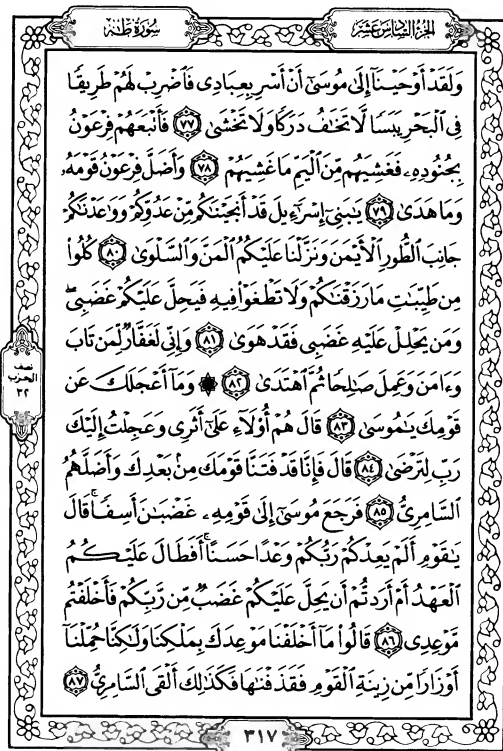 سُورَةُ طٰهٰ
الجُزْءُ السَّادِسَ عَشَرَ
وَلَقَدْ أَوْحَيْنَآ إِلَىٰ مُوسَىٰٓ أَنْ أَسْرِ بِعِبَادِى فَٱضْرِبْ لَهُمْ طَرِيقًا
فِى ٱلْبَحْرِ يَبَسًا لَّا تَخَـٰفُ دَرَكًا وَلَا تَخْشَىٰ ٧٧ فَأَتْبَعَهُمْ فِرْعَوْنُ
بِجُنُودِهِۦ فَغَشِيَهُم مِّنَ ٱلْيَمِّ مَا غَشِيَهُمْ ٧٨ وَأَضَلَّ فِرْعَوْنُ قَوْمَهُۥ
وَمَا هَدَىٰ ٧٩ يَـٰبَنِىٓ إِسْرَٰٓءِيلَ قَدْ أَنجَيْنَـٰكُم مِّنْ عَدُوِّكُمْ وَوَٰعَدْنَـٰكُمْ
جَانِبَ ٱلطُّورِ ٱلْأَيْمَنَ وَنَزَّلْنَا عَلَيْكُمُ ٱلْمَنَّ وَٱلسَّلْوَىٰ ٨٠ كُلُوا۟
مِن طَيِّبَـٰتِ مَا رَزَقْنَـٰكُمْ وَلَا تَطْغَوْا۟ فِيهِ فَيَحِلَّ عَلَيْكُمْ غَضَبِى ۖ
وَمَن يَحْلِلْ عَلَيْهِ غَضَبِى فَقَدْ هَوَىٰ ٨١ وَإِنِّى لَغَفَّارٌ لِّمَن تَابَ
وَءَامَنَ وَعَمِلَ صَـٰلِحًا ثُمَّ ٱهْتَدَىٰ ٨٢ ۞ وَمَآ أَعْجَلَكَ عَن
قَوْمِكَ يَـٰمُوسَىٰ ٨٣ قَالَ هُمْ أُو۟لَآءِ عَلَىٰٓ أَثَرِى وَعَجِلْتُ إِلَيْكَ
رَبِّ لِتَرْضَىٰ ٨٤ قَالَ فَإِنَّا قَدْ فَتَنَّا قَوْمَكَ مِنۢ بَعْدِكَ وَأَضَلَّهُمُ
ٱلسَّامِرِىُّ ٨٥ فَرَجَعَ مُوسَىٰٓ إِلَىٰ قَوْمِهِۦ غَضْبَـٰنَ أَسِفًا ۚ قَالَ
يَـٰقَوْمِ أَلَمْ يَعِدْكُمْ رَبُّكُمْ وَعْدًا حَسَنًا ۚ أَفَطَالَ عَلَيْكُمُ
ٱلْعَهْدُ أَمْ أَرَدتُّمْ أَن يَحِلَّ عَلَيْكُمْ غَضَبٌ مِّن رَّبِّكُمْ فَأَخْلَفْتُم
مَّوْعِدِى ٨٦ قَالُوا۟ مَآ أَخْلَفْنَا مَوْعِدَكَ بِمَلْكِنَا وَلَـٰكِنَّا حُمِّلْنَآ
أَوْزَارًا مِّن زِينَةِ ٱلْقَوْمِ فَقَذَفْنَـٰهَا فَكَذَٰلِكَ أَلْقَى ٱلسَّامِرِىُّ ٨٧
نصف
الحزب
٣٢
٣١٧